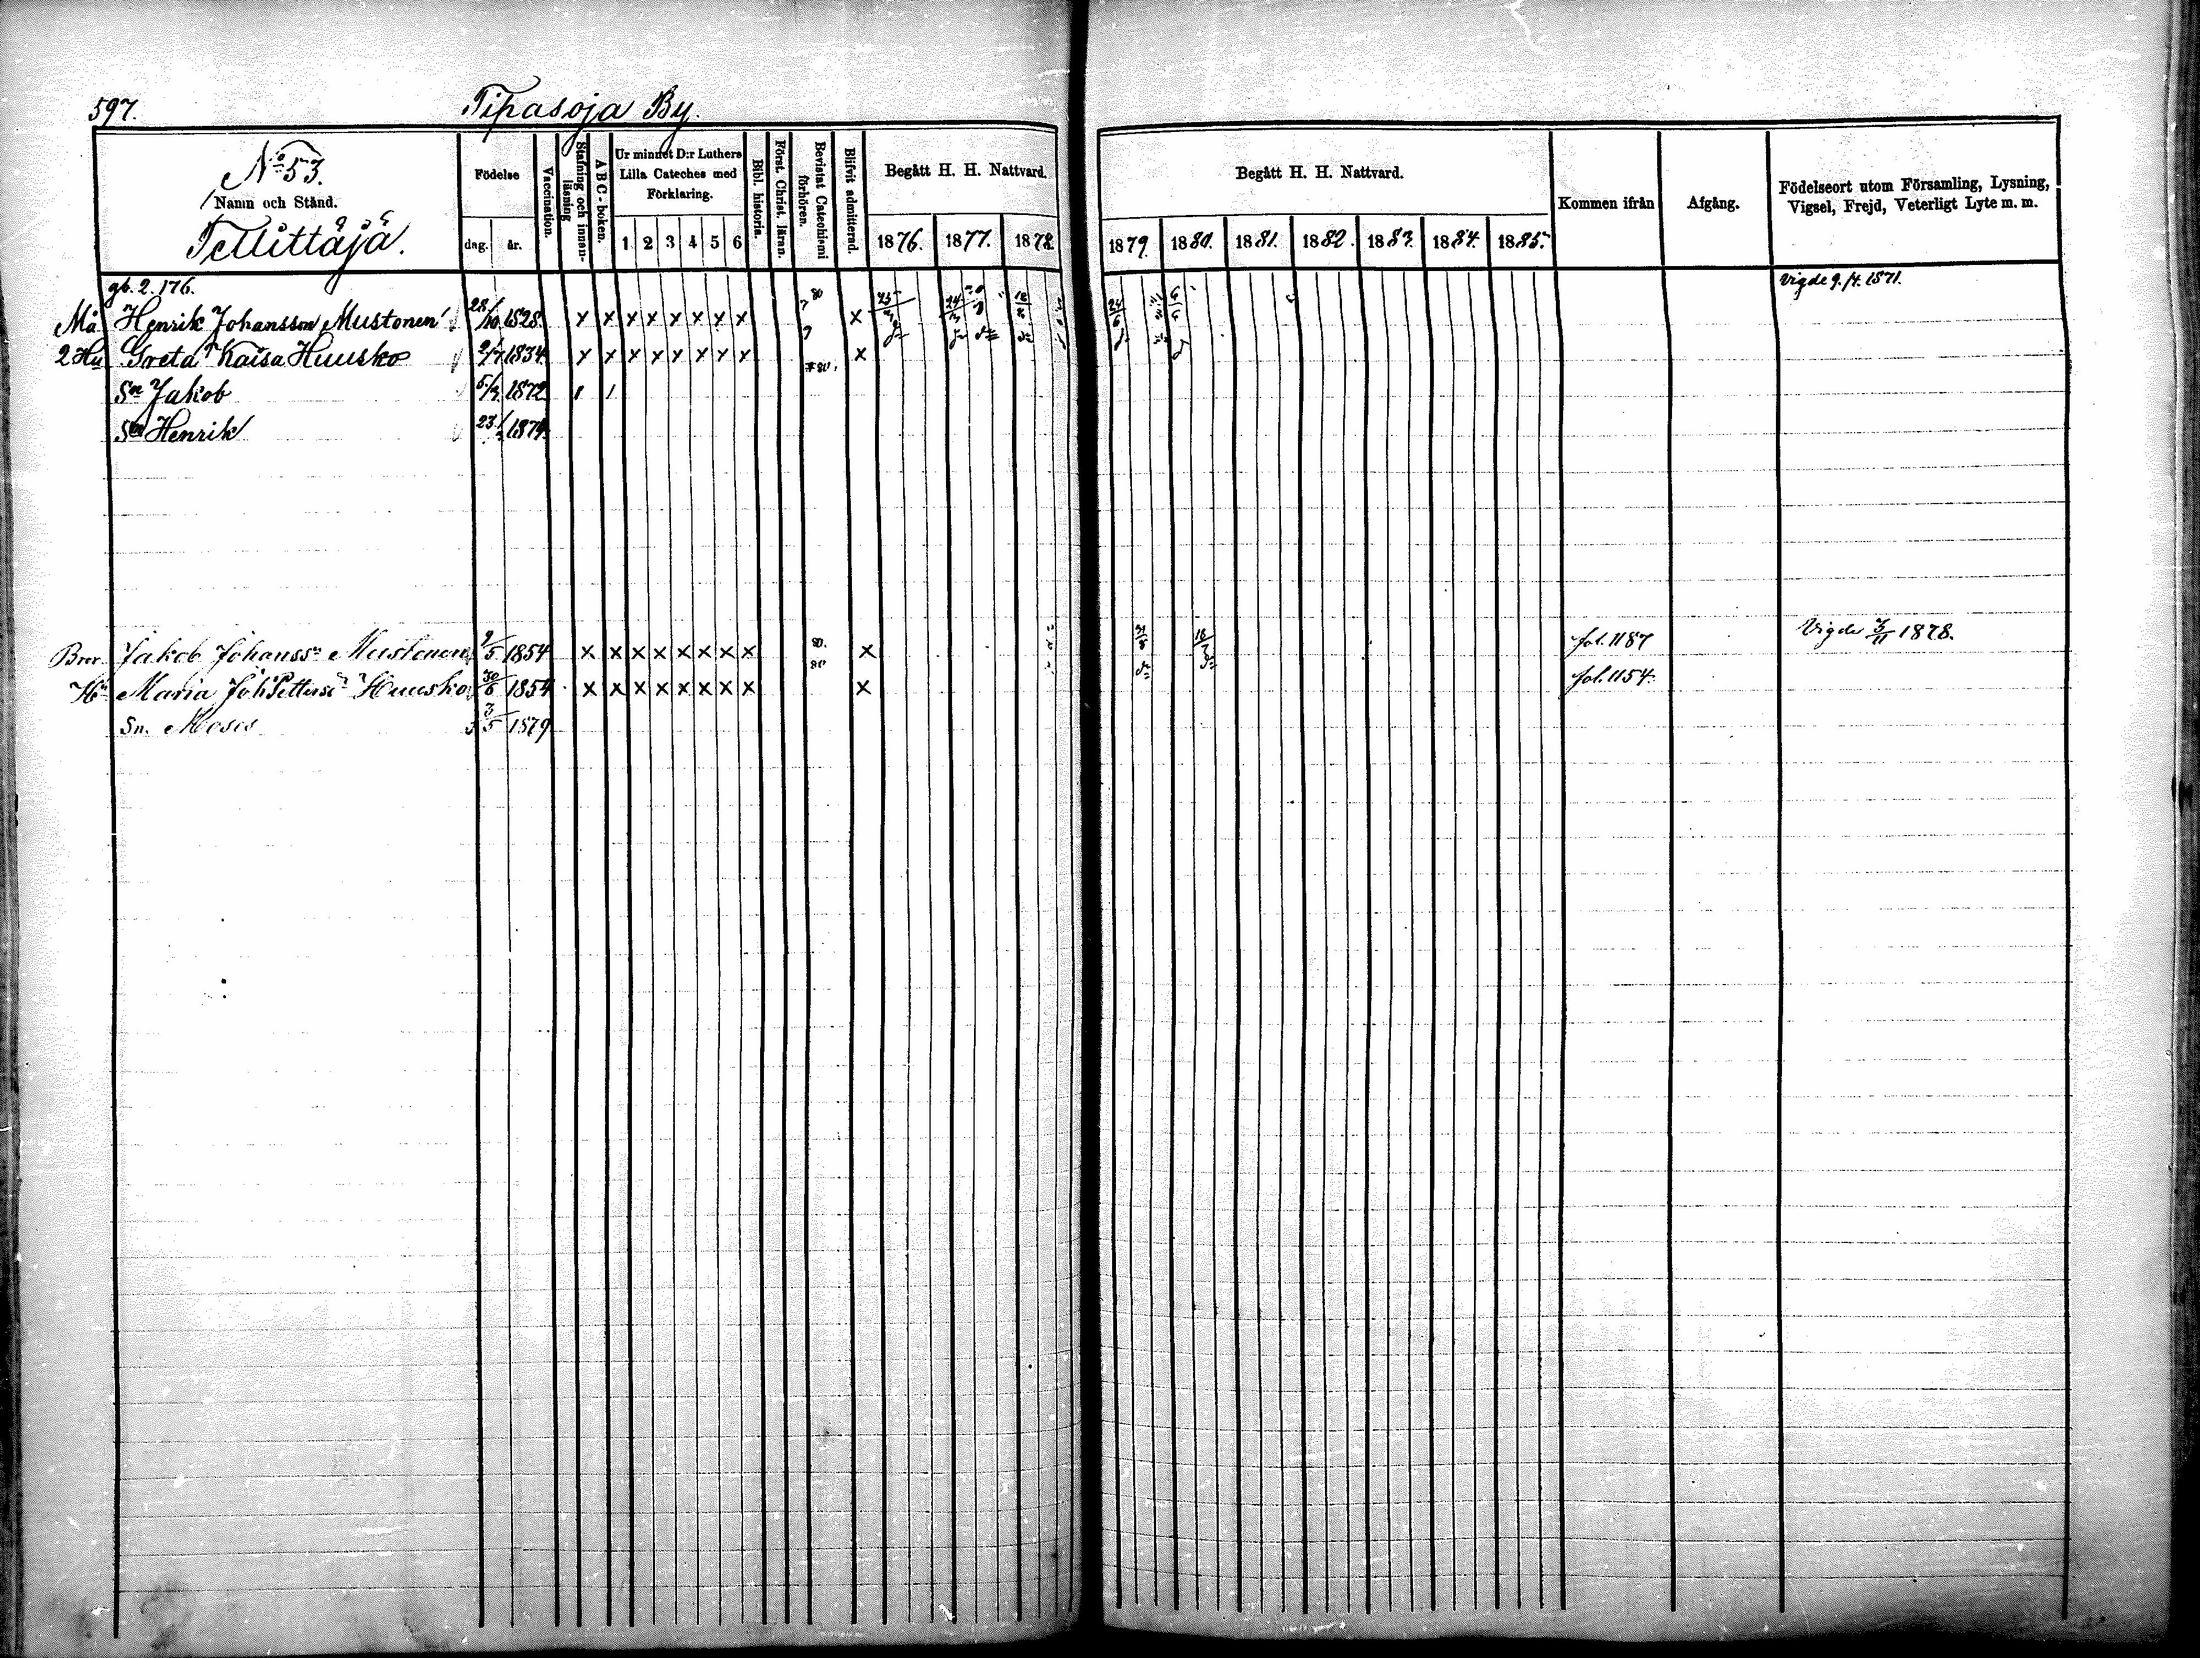 597.
Tipasoja By.
No 53.
Namn och Stånd.
Tellittäjä.
Födelse
dag. år.
Vaccination.
Stafning och innanläsning
ABC-boken.
Ur minnet D:r Luthers Lilla Cateches med Förklaring.
1 2 3 4 5 6
Bibl. historia.
Först. Christ. läran.
Bevistat Catechismi förhören.
Blifvit admitterad.
Begått H. H. Nattvard.
1876. 1877. 1878.
Begått H. H. Nattvard.
1879. 1880. 1881. 1882. 1883. 1884. 1885.
Kommen ifrån
Afgång.
Födelseort utom Församling, Lysning, Vigsel, Frejd, Veterligt Lyte m. m.
gb. 2. 176.
Vigde 9./4. 1871.
Må Henrik Johansson Mustonen 28/10 1828. x x x x x x x x 80 x
2 Hu Greta Kaisa Huusko 9/7 1834. x x x x x x x x 80. x
Sn Jakob 5/3 1872
Sn Henrik 23/ 1874.
Bror Jakob Johanss. Mustonen 9/5 1854 x x x x x x x x 80. x fol. 1187 Vigde 3/11 1878.
Hu Maria Joh Petters. Huusko 30/6 1854 x x x x x x x x 80 x fol. 1154.
Sn. Moses 3/5 1879